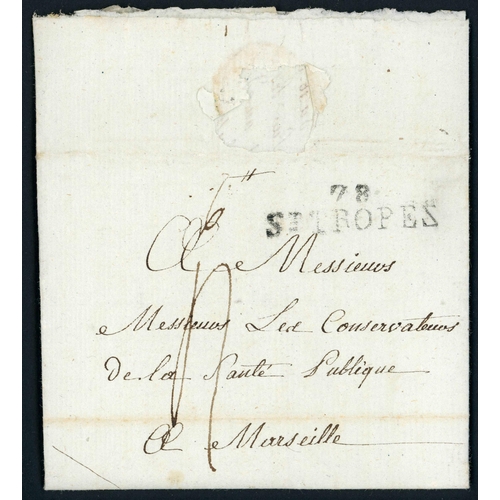 78
ST TROPEZ
A Messieurs
Messieurs Les Conservateurs
de la Santé Publique
A Marseille